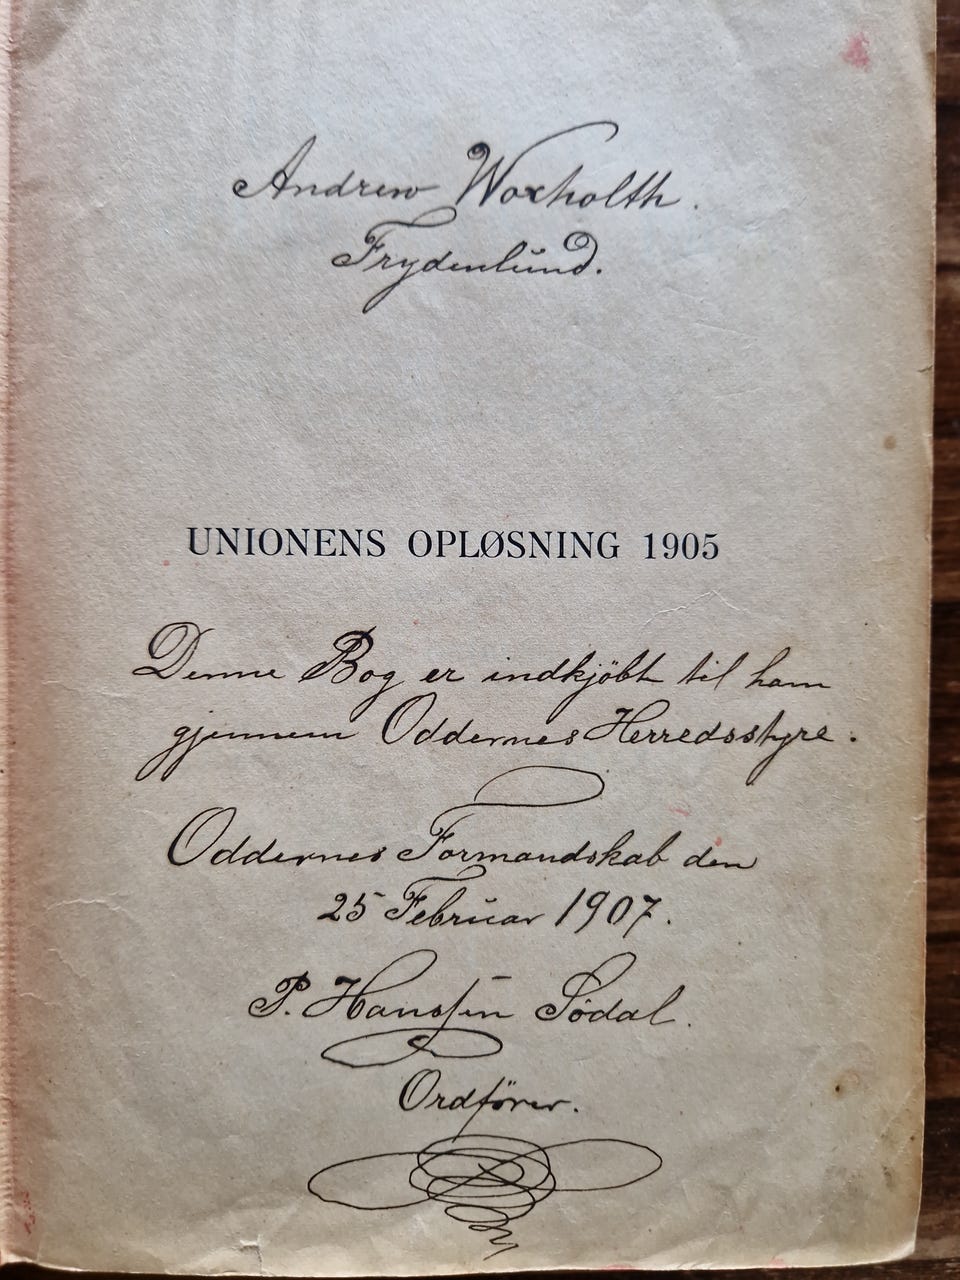 Andrew Woxholth.
Frydenlund.
UNIONENS OPLØSNING 1905
Denne Bog er indkjöbt til ham
gjennem Oddernes Herredsstyre.
Oddernes Formandskab den
25 Februar 1907.
P. Hanssen Södal.
Ordförer.